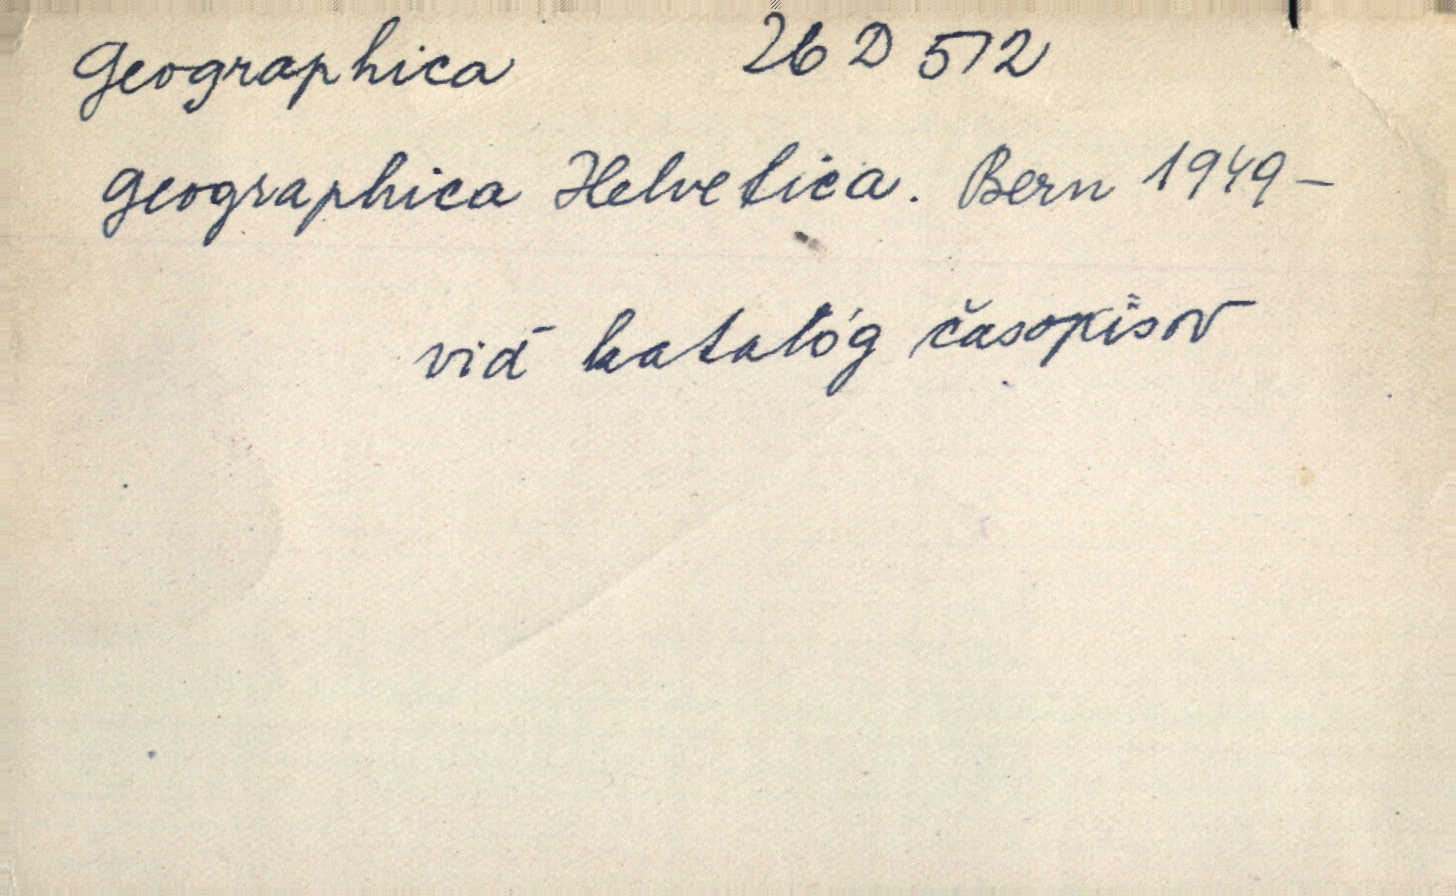 Geographica 26 D 572
Geographica Helvetica. Bern 1949-
viď katalóg časopisov